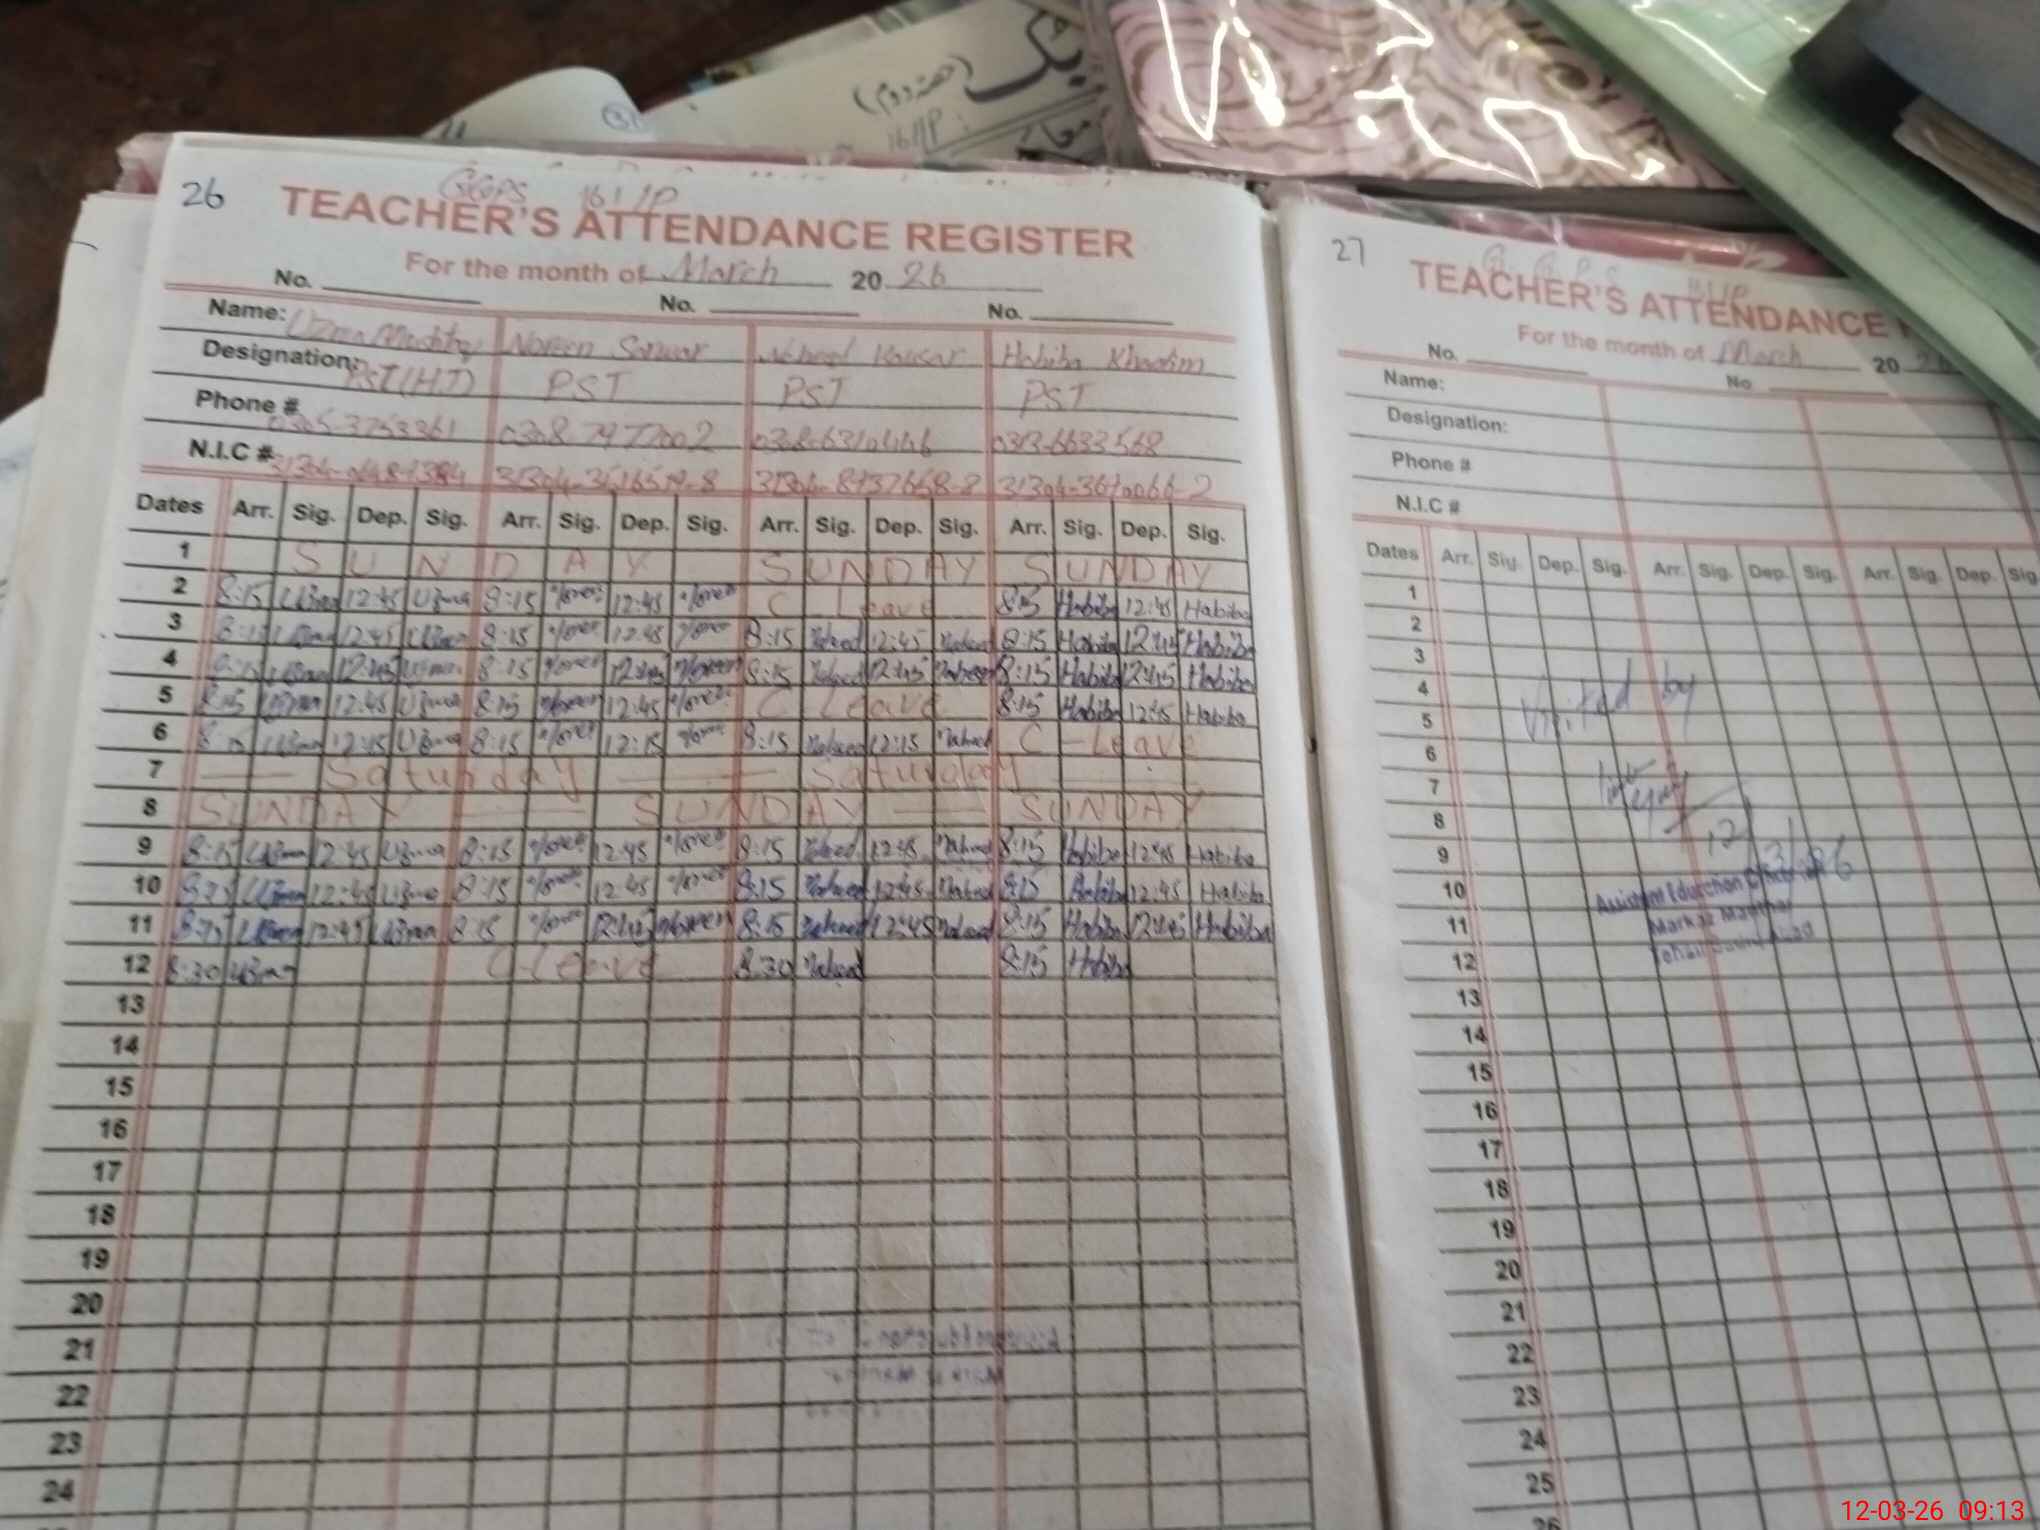 تک (حصہ دوم)
161/P
31
26
GGPS 161/P
TEACHER'S ATTENDANCE REGISTER
For the month of March 2026
No. No. No.
Name: Uzma Noreen Sarwar Kausar Habiba Khadim
Designation: PST(HT) PST PST PST
Phone #
N.I.C #
Dates Arr. Sig. Dep. Sig. Arr. Sig. Dep. Sig. Arr. Sig. Dep. Sig. Arr. Sig. Dep. Sig.
1 SUNDAY SUNDAY SUNDAY
2 8:15 Uzma 12:45 Uzma 8:15 Noreen 12:45 Noreen C Leave 8:15 Habiba 12:45 Habiba
3 8:15 Uzma 12:45 Uzma 8:15 Noreen 12:45 Noreen 8:15 Naheed 12:45 Naheed 8:15 Habiba 12:45 Habiba
4 8:15 Uzma 12:45 Uzma 8:15 Noreen 12:45 Noreen 8:15 Naheed 12:45 Naheed 8:15 Habiba 12:45 Habiba
5 8:15 Uzma 12:45 Uzma 8:15 Noreen 12:45 Noreen C Leave 8:15 Habiba 12:45 Habiba
6 8:15 Uzma 12:15 Uzma 8:15 Noreen 12:15 Noreen 8:15 Naheed 12:15 Naheed C-Leave
7 Saturday Saturday
8 SUNDAY SUNDAY SUNDAY
9 8:15 Uzma 12:45 Uzma 8:15 Noreen 12:45 Noreen 8:15 Naheed 12:45 Naheed 8:15 Habiba 12:45 Habiba
10 8:15 Uzma 12:45 Uzma 8:15 Noreen 12:45 Noreen 8:15 Naheed 12:45 Naheed 8:15 Habiba 12:45 Habiba
11 8:15 Uzma 12:45 Uzma 8:15 Noreen 12:45 Noreen 8:15 Naheed 12:45 Naheed 8:15 Habiba 12:45 Habiba
12 8:30 Uzma C-Leave 8:30 Naheed 8:15 Habiba
13
14
15
16
17
18
19
20
21
22
23
24
27
161/P
TEACHER'S ATTENDANCE
For the month of March 20
No. No
Name:
Designation:
Phone #
N.I.C #
Dates Arr. Sig. Dep. Sig. Arr. Sig. Dep. Sig. Arr. Sig. Dep. Sig
1
2
3
4
5
6
7
8
9
10
11
12
13
14
15
16
17
18
19
20
21
22
23
24
25
26
Visited by
12/3/26
Assistant Education Officer
Markaz Manthar
12-03-26 09:13